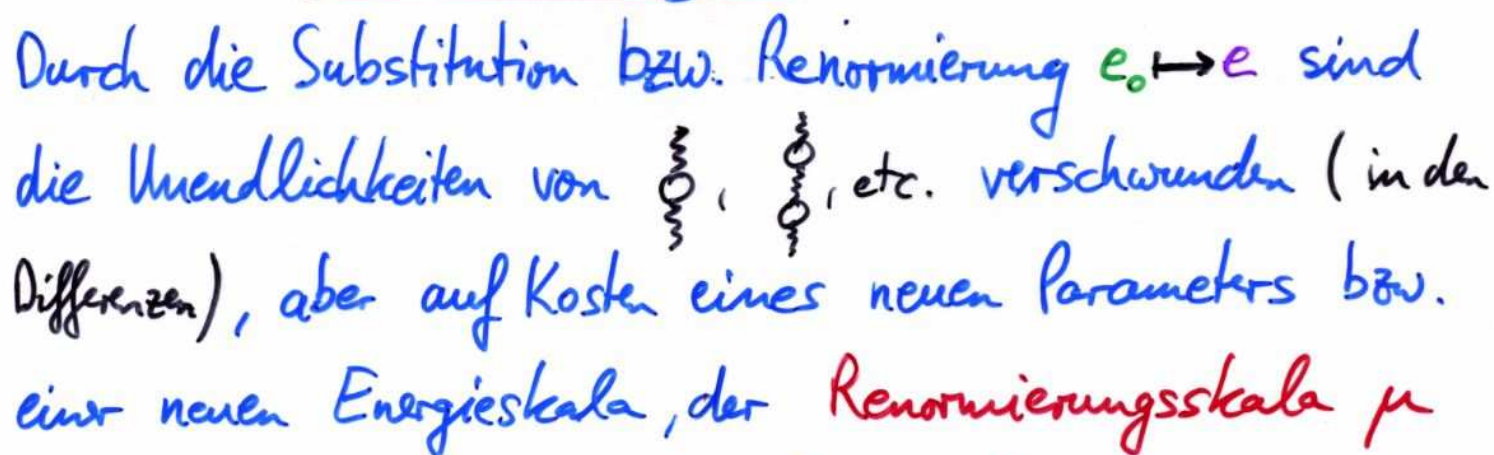 Durch die Substitution bzw. Renormierung e₀ ↦ e sind
die Unendlichkeiten von , , etc. verschwunden (in den
Differenzen), aber auf Kosten eines neuen Parameters bzw.
einer neuen Energieskala, der Renormierungsskala μ